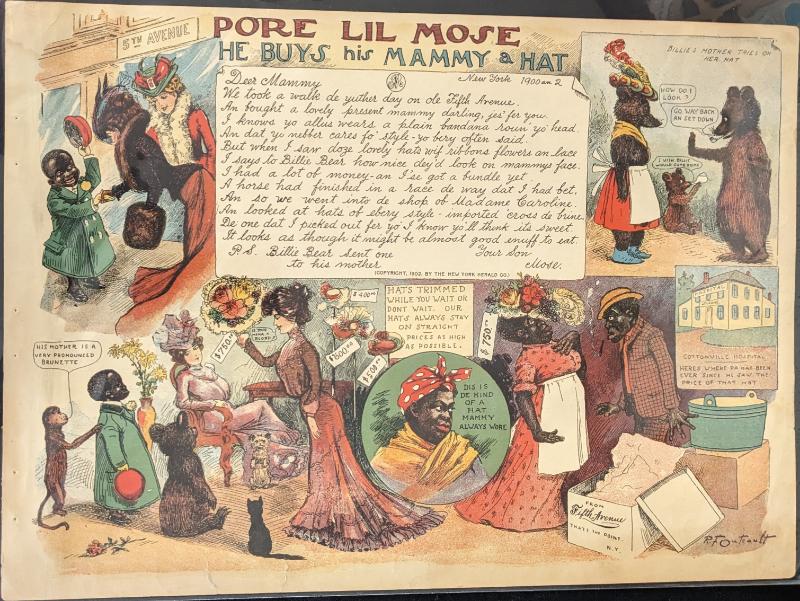 PORE LIL MOSE
HE BUYS his MAMMY a HAT
5TH AVENUE
Dear Mammy
New York 1900 an 2
We took a walk de yuther day on ole Fifth Avenue.
An bought a lovely present mammy darling, jes' fer you.
I knows yo allus wears a plain bandana roun yo' head.
An dat yo nebber cares fo' style - yo bery often said.
But when I saw doze lovely hats wif ribbons flowers an lace
I says to Billie Bear how nice dey'd look on mammys face.
I had a lot of money - an I'se got a bundle yet
A horse had finished in a race de way dat I had bet.
An so we went into de shop of Madame Caroline.
An looked at hats of ebery style - imported cross de brine.
De one dat I picked out fer yo' I know yo'll think its sweet.
It looks as though it might be almost good enuff to eat.
P.S. Billie Bear sent one
to his mother
Your Son
Mose.
(COPYRIGHT, 1902, BY THE NEW YORK HERALD CO.)
BILLIE'S MOTHER TRIES ON
HER HAT
HOW DO I
LOOK?
GO WAY BACK
AN SET DOWN
I WISH BILLIE
WOULD COME HOME
HIS MOTHER IS A
VERY PRONOUNCED
BRUNETTE
$750.00
IS YOUR
MAMA A
BLONDE?
$400.00
$600.00
$500.00
HATS TRIMMED
WHILE YOU WAIT OR
DONT WAIT. OUR
HATS ALWAYS STAY
ON STRAIGHT
PRICES AS HIGH
AS POSSIBLE.
DIS IS
DE KIND
OF A
HAT
MAMMY
ALWAYS WORE
$750.00
HOSPITAL
COTTONVILLE HOSPITAL
HERES WHERE PA HAS BEEN
EVER SINCE HE SAW THE
PRICE OF THAT HAT
FROM
Fifth Avenue
THATS THE POINT
N.Y.
R.F. Outcault